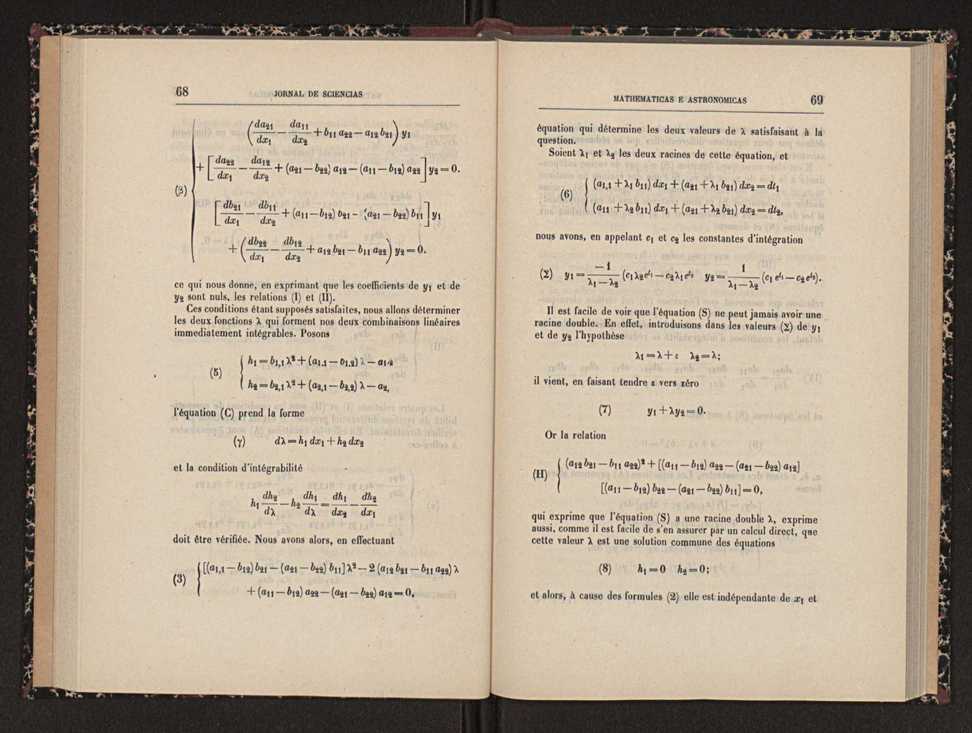 68 JORNAL DE SCIENCIAS
(β) { (da₂₁/dx₁ − da₁₁/dx₂ + b₁₁ a₂₂ − a₁₂ b₂₁) y₁
+ [da₂₂/dx₁ − da₁₂/dx₂ + (a₂₁ − b₂₂) a₁₂ − (a₁₁ − b₁₂) a₂₂] y₂ = 0.
[db₂₁/dx₁ − db₁₁/dx₂ + (a₁₁ − b₁₂) b₂₁ − (a₂₁ − b₂₂) b₁₁] y₁
+ (db₂₂/dx₁ − db₁₂/dx₂ + a₁₂ b₂₁ − b₁₁ a₂₂) y₂ = 0.
ce qui nous donne, en exprimant que les coefficients de y₁ et de
y₂ sont nuls, les relations (I) et (II).
Ces conditions étant supposés satisfaites, nous allons déterminer
les deux fonctions λ qui forment nos deux combinaisons linéaires
immediatement intégrables. Posons
(5) { h₁ = b₁,₁ λ² + (a₁.₁ − b₁,₂) λ − a₁₂
h₂ = b₂,₁ λ² + (a₂,₁ − b₂,₂) λ − a₂,
l'équation (C) prend la forme
(γ) dλ = h₁ dx₁ + h₂ dx₂
et la condition d'intégrabilité
h₁ dh₂/dλ − h₂ dh₁/dλ = dh₁/dx₂ − dh₂/dx₁
doit être vérifiée. Nous avons alors, en effectuant
(3) { [(a₁,₁ − b₁₂) b₂₁ − (a₂₁ − b₂₂) b₁₁] λ² − 2 (a₁₂ b₂₁ − b₁₁ a₂₂) λ
+ (a₁₁ − b₁₂) a₂₂ − (a₂₁ − b₂₂) a₁₂ = 0,
MATHEMATICAS E ASTRONOMICAS 69
équation qui détermine les deux valeurs de λ satisfaisant à la
question.
Soient λ₁ et λ₂ les deux racines de cette équation, et
(6) { (a₁,₁ + λ₁ b₁₁) dx₁ + (a₂₁ + λ₁ b₂₁) dx₂ = dt₁
(a₁₁ + λ₂ b₁₁) dx₁ + (a₂₁ + λ₂ b₂₁) dx₂ = dt₂,
nous avons, en appelant c₁ et c₂ les constantes d'intégration
(Σ) y₁ = −1/(λ₁ − λ₂) (c₁ λ₂ e^t₁ − c₂ λ₁ e^t₂ y₂ = 1/(λ₁ − λ₂) (c₁ e^t₁ − c₂ e^t₂).
Il est facile de voir que l'équation (S) ne peut jamais avoir une
racine double. En effet, introduisons dans les valeurs (Σ) de y₁
et de y₂ l'hypothèse
λ₁ = λ + ε λ₂ = λ;
il vient, en faisant tendre ε vers zéro
(7) y₁ + λ y₂ = 0.
Or la relation
(H) { (a₁₂ b₂₁ − b₁₁ a₂₂)² + [(a₁₁ − b₁₂) a₂₂ − (a₂₁ − b₂₂) a₁₂]
[(a₁₁ − b₁₂) b₂₂ − (a₂₁ − b₂₂) b₁₁] = 0,
qui exprime que l'équation (S) a une racine double λ, exprime
aussi, comme il est facile de s'en assurer par un calcul direct, que
cette valeur λ est une solution commune des équations
(8) h₁ = 0 h₂ = 0;
et alors, à cause des formules (2) elle est indépendante de x₁ et